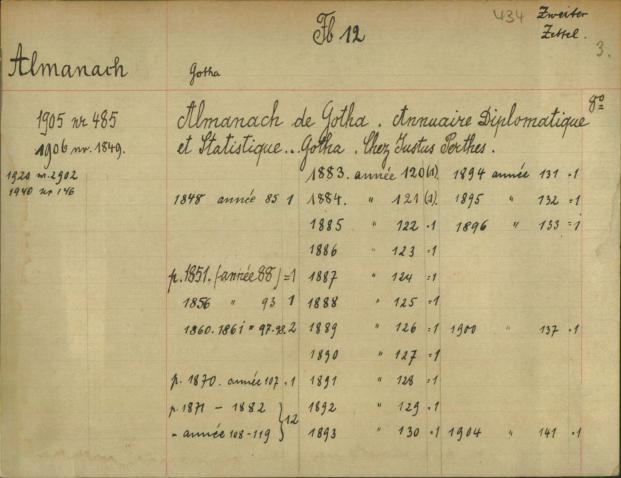 Fb 12
434 Zweiter
Zettel.
3.
Almanach
Gotha
8º
1905 nr 485
1906 nr. 1849.
1920 nr. 2902
1940 nr 146
Almanach de Gotha. Annuaire Diplomatique
et Statistique... Gotha. Chez Justus Perthes.
1883. année 120 (1). 1894 année 131 = 1
1848 année 85 1 1884. " 121 (1). 1895 " 132 = 1
1885 " 122 = 1 1896 " 133 = 1
1886 " 123 = 1
p. 1851. (année 88) = 1 1887 " 124 = 1
1856 " 93 1 1888 " 125 = 1
1860. 1861 " 97-98. 2 1889 " 126 = 1 1900 " 137 = 1
1890 " 127 = 1
p. 1870. année 107 = 1 1891 " 128 = 1
p. 1871 - 1882 } 12 1892 " 129 = 1
- année 108-119 1893 " 130 = 1 1904 " 141 = 1